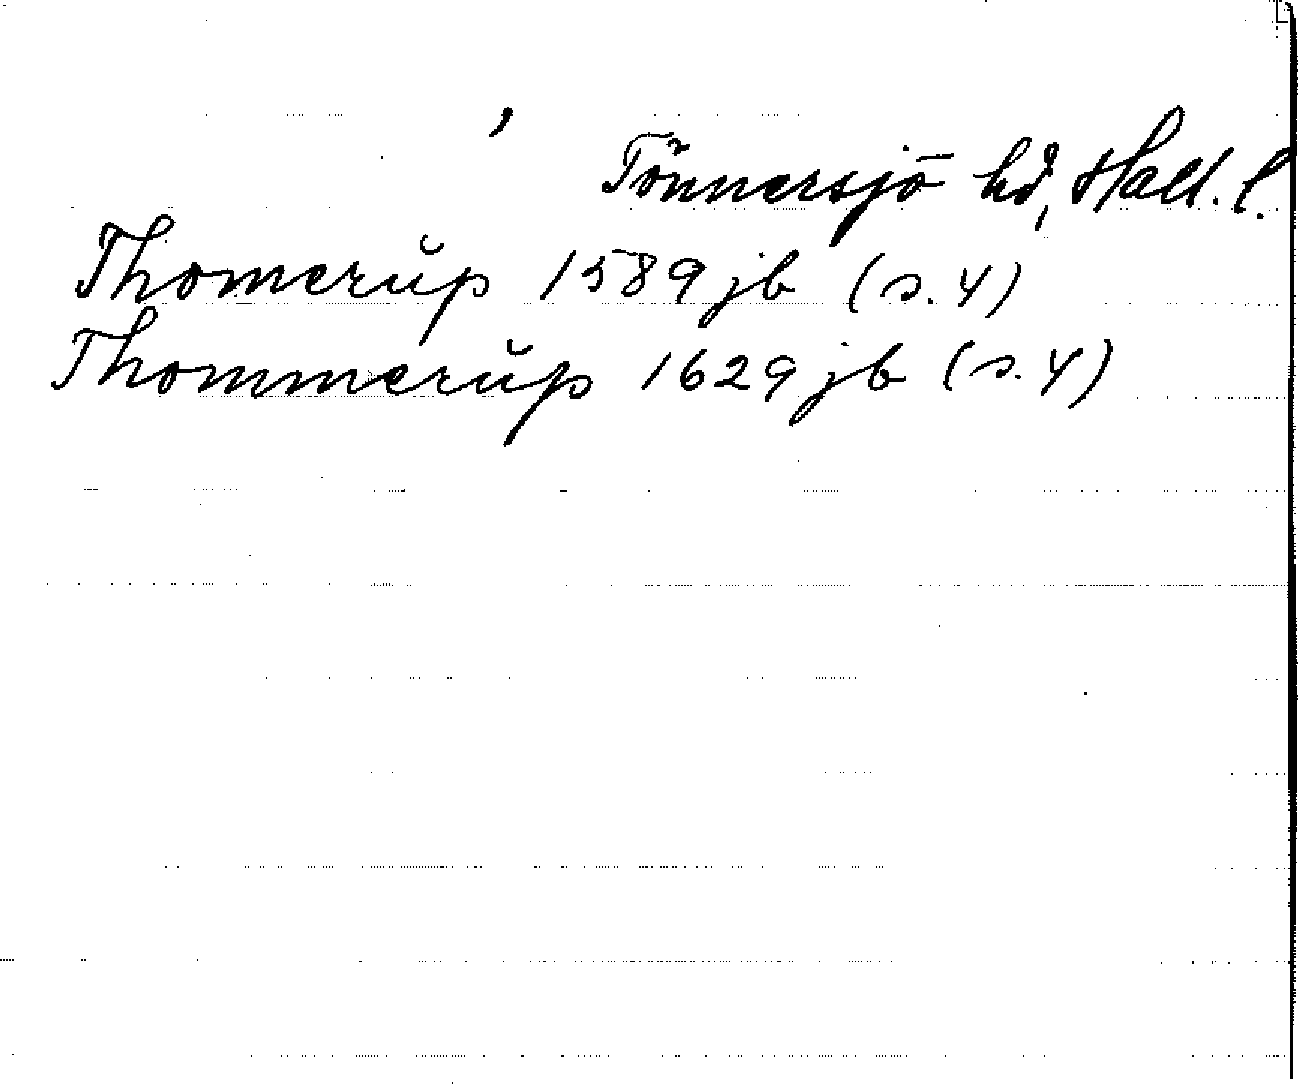 Tönnersjö hd, Hall. l.
Thomerŭp 1589 jb (s. 4)
Thommerŭp 1629 jb (s. 4)